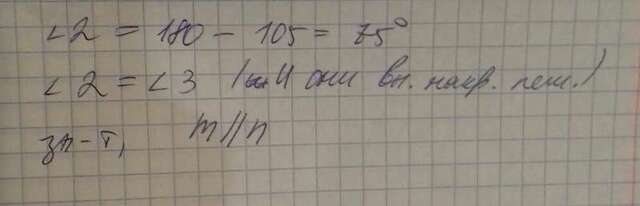 ∠2 = 180 - 105 = 75°
∠2 = ∠3 ( они вн. накр. леж.)
зн-т, m || n